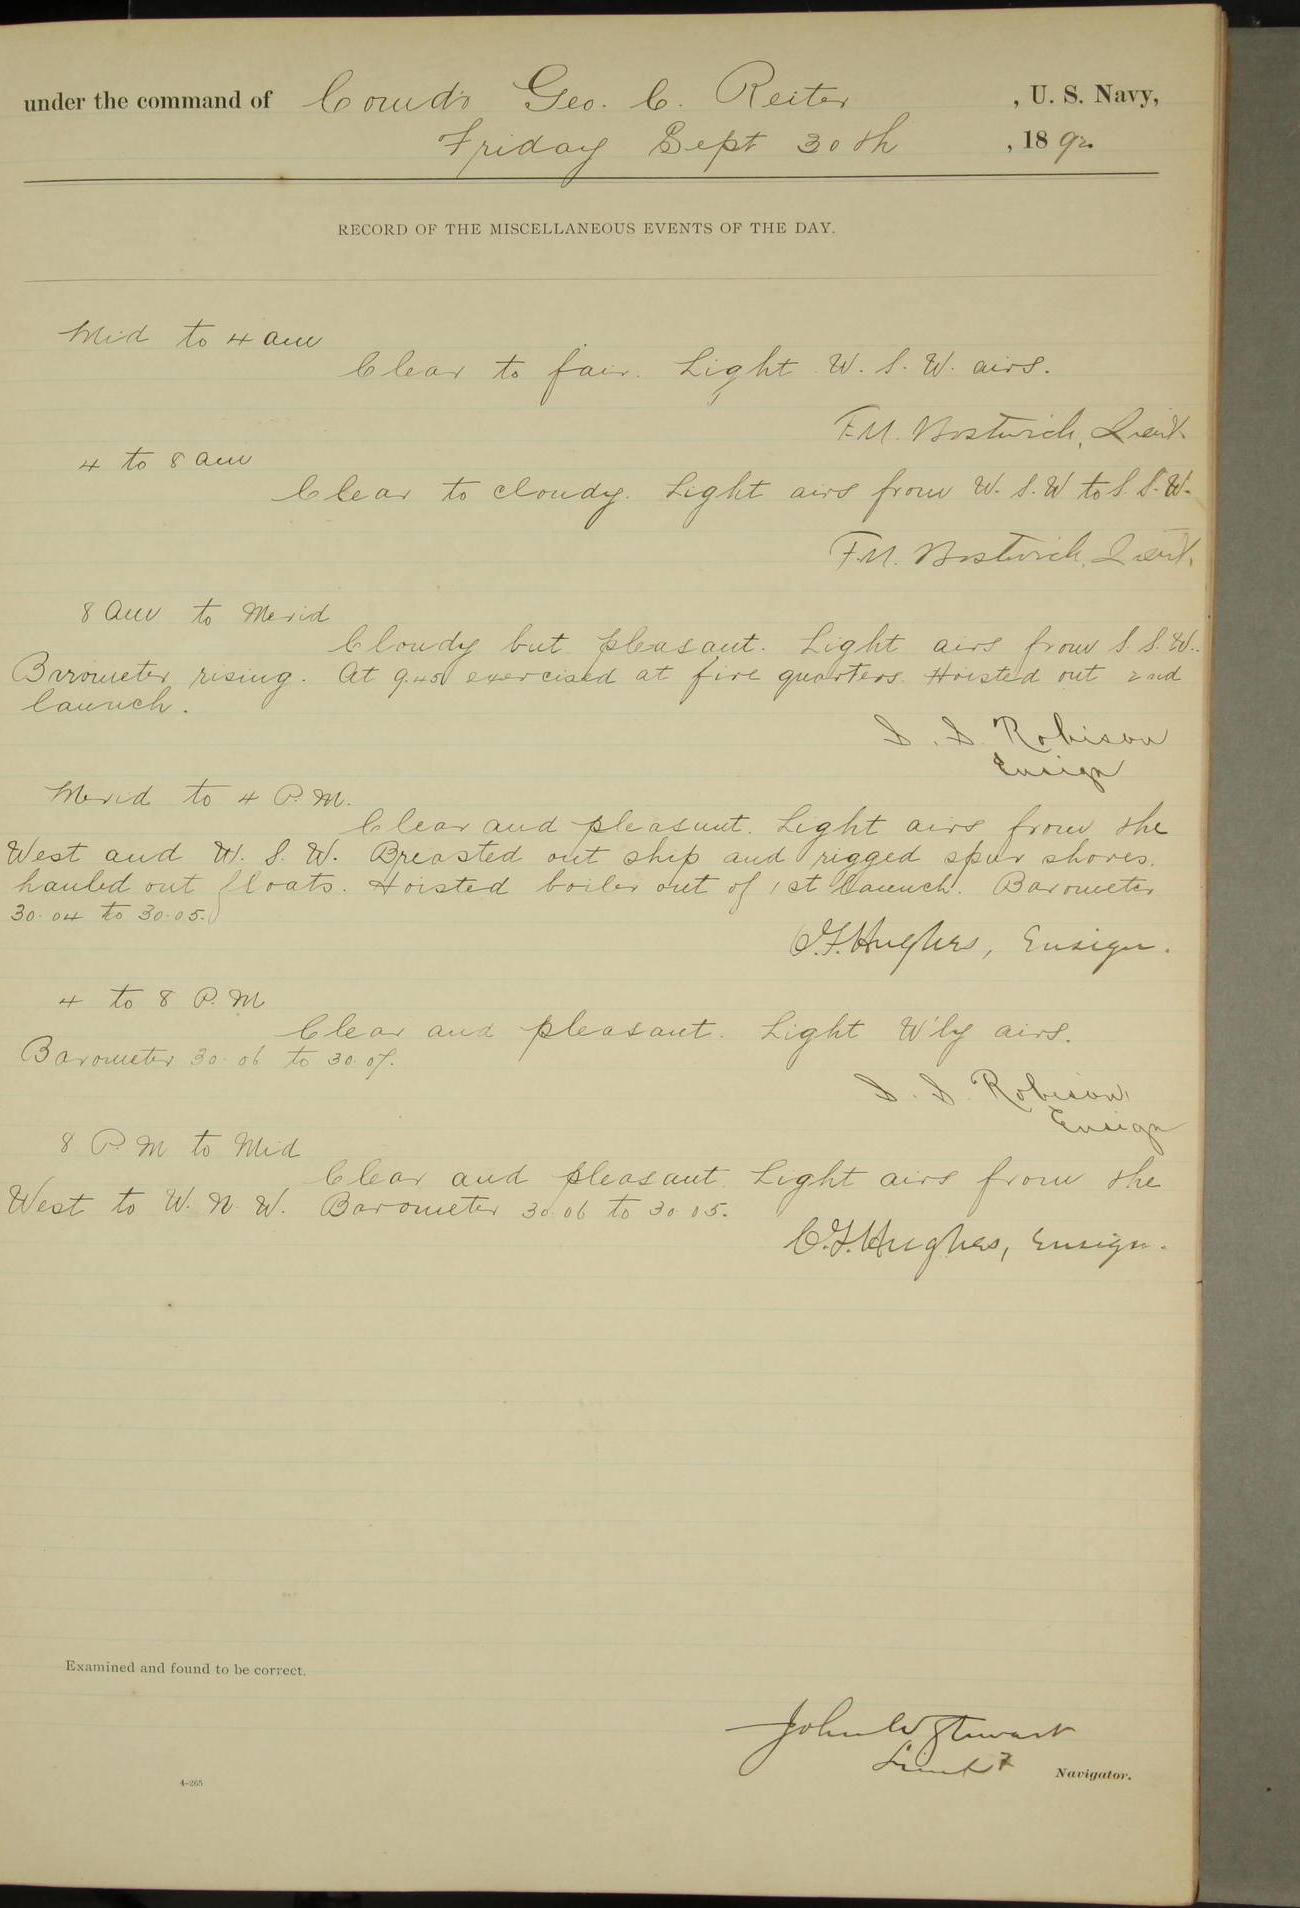 under the command of Comd'r Geo. C. Reiter, U. S. Navy,
Friday Sept 30th, 1892
RECORD OF THE MISCELLANEOUS EVENTS OF THE DAY.
Mid to 4 am
Clear to fair. Light W. S. W. airs.
F.M. Bostwick, Lieut.
4 to 8 am
Clear to cloudy. Light airs from W. S. W to S. S. W.
F.M. Bostwick, Lieut.
8 am to Merid
Cloudy but pleasant. Light airs from S. S. W.
Barometer rising. At 9.45 exercised at fire quarters. Hoisted out 2nd
launch.
S. S. Robison
Ensign
Merid to 4 P.M.
Clear and pleasant. Light airs from the
West and W. S. W. Breasted out ship and rigged spur shores.
hauled out floats. Hoisted boiler out of 1st launch. Barometer
30.04 to 30.05.
C.F. Hughes, Ensign.
4 to 8 P.M
Clear and pleasant. Light W'ly airs.
Barometer 30.06 to 30.07.
S. S. Robison,
Ensign
8 P.M to Mid
Clear and pleasant. Light airs from the
West to W. N. W. Barometer 30.06 to 30.05.
C.F. Hughes, Ensign.
Examined and found to be correct.
John W Stewart
Lieut
Navigator.
4-265